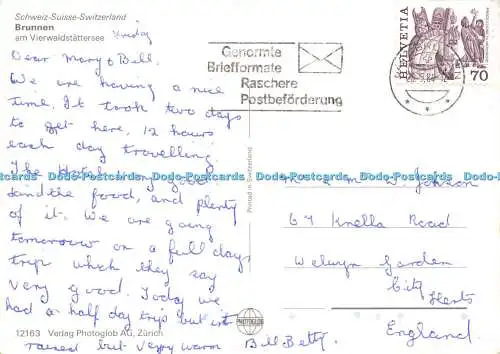 Schweiz-Suisse-Switzerland
Brunnen
am Vierwaldstättersee
Friday
Dear Mary & Bill.
We are having a nice
time, It took two days
to get here, 12 hours
each day travelling
The Hotel very good
and the food, and plenty
of it. We are going
tomorrow on a full days
trip which they say
very good. Today we
had a half day trip but it
rained but very warm
Bill Betty.
Genormte
Briefformate
Raschere
Postbeförderung
HELVETIA
70
Mr & Mrs W. Johnson
67 Knella Road
Welwyn Garden
City
Herts
England
Printed in Switzerland
PHOTOGLOB
12163 Verlag Photoglob AG, Zürich
Dodo-Postcards Dodo-Postcards Dodo-Postcards Dodo-Postcards Dodo-Postcards